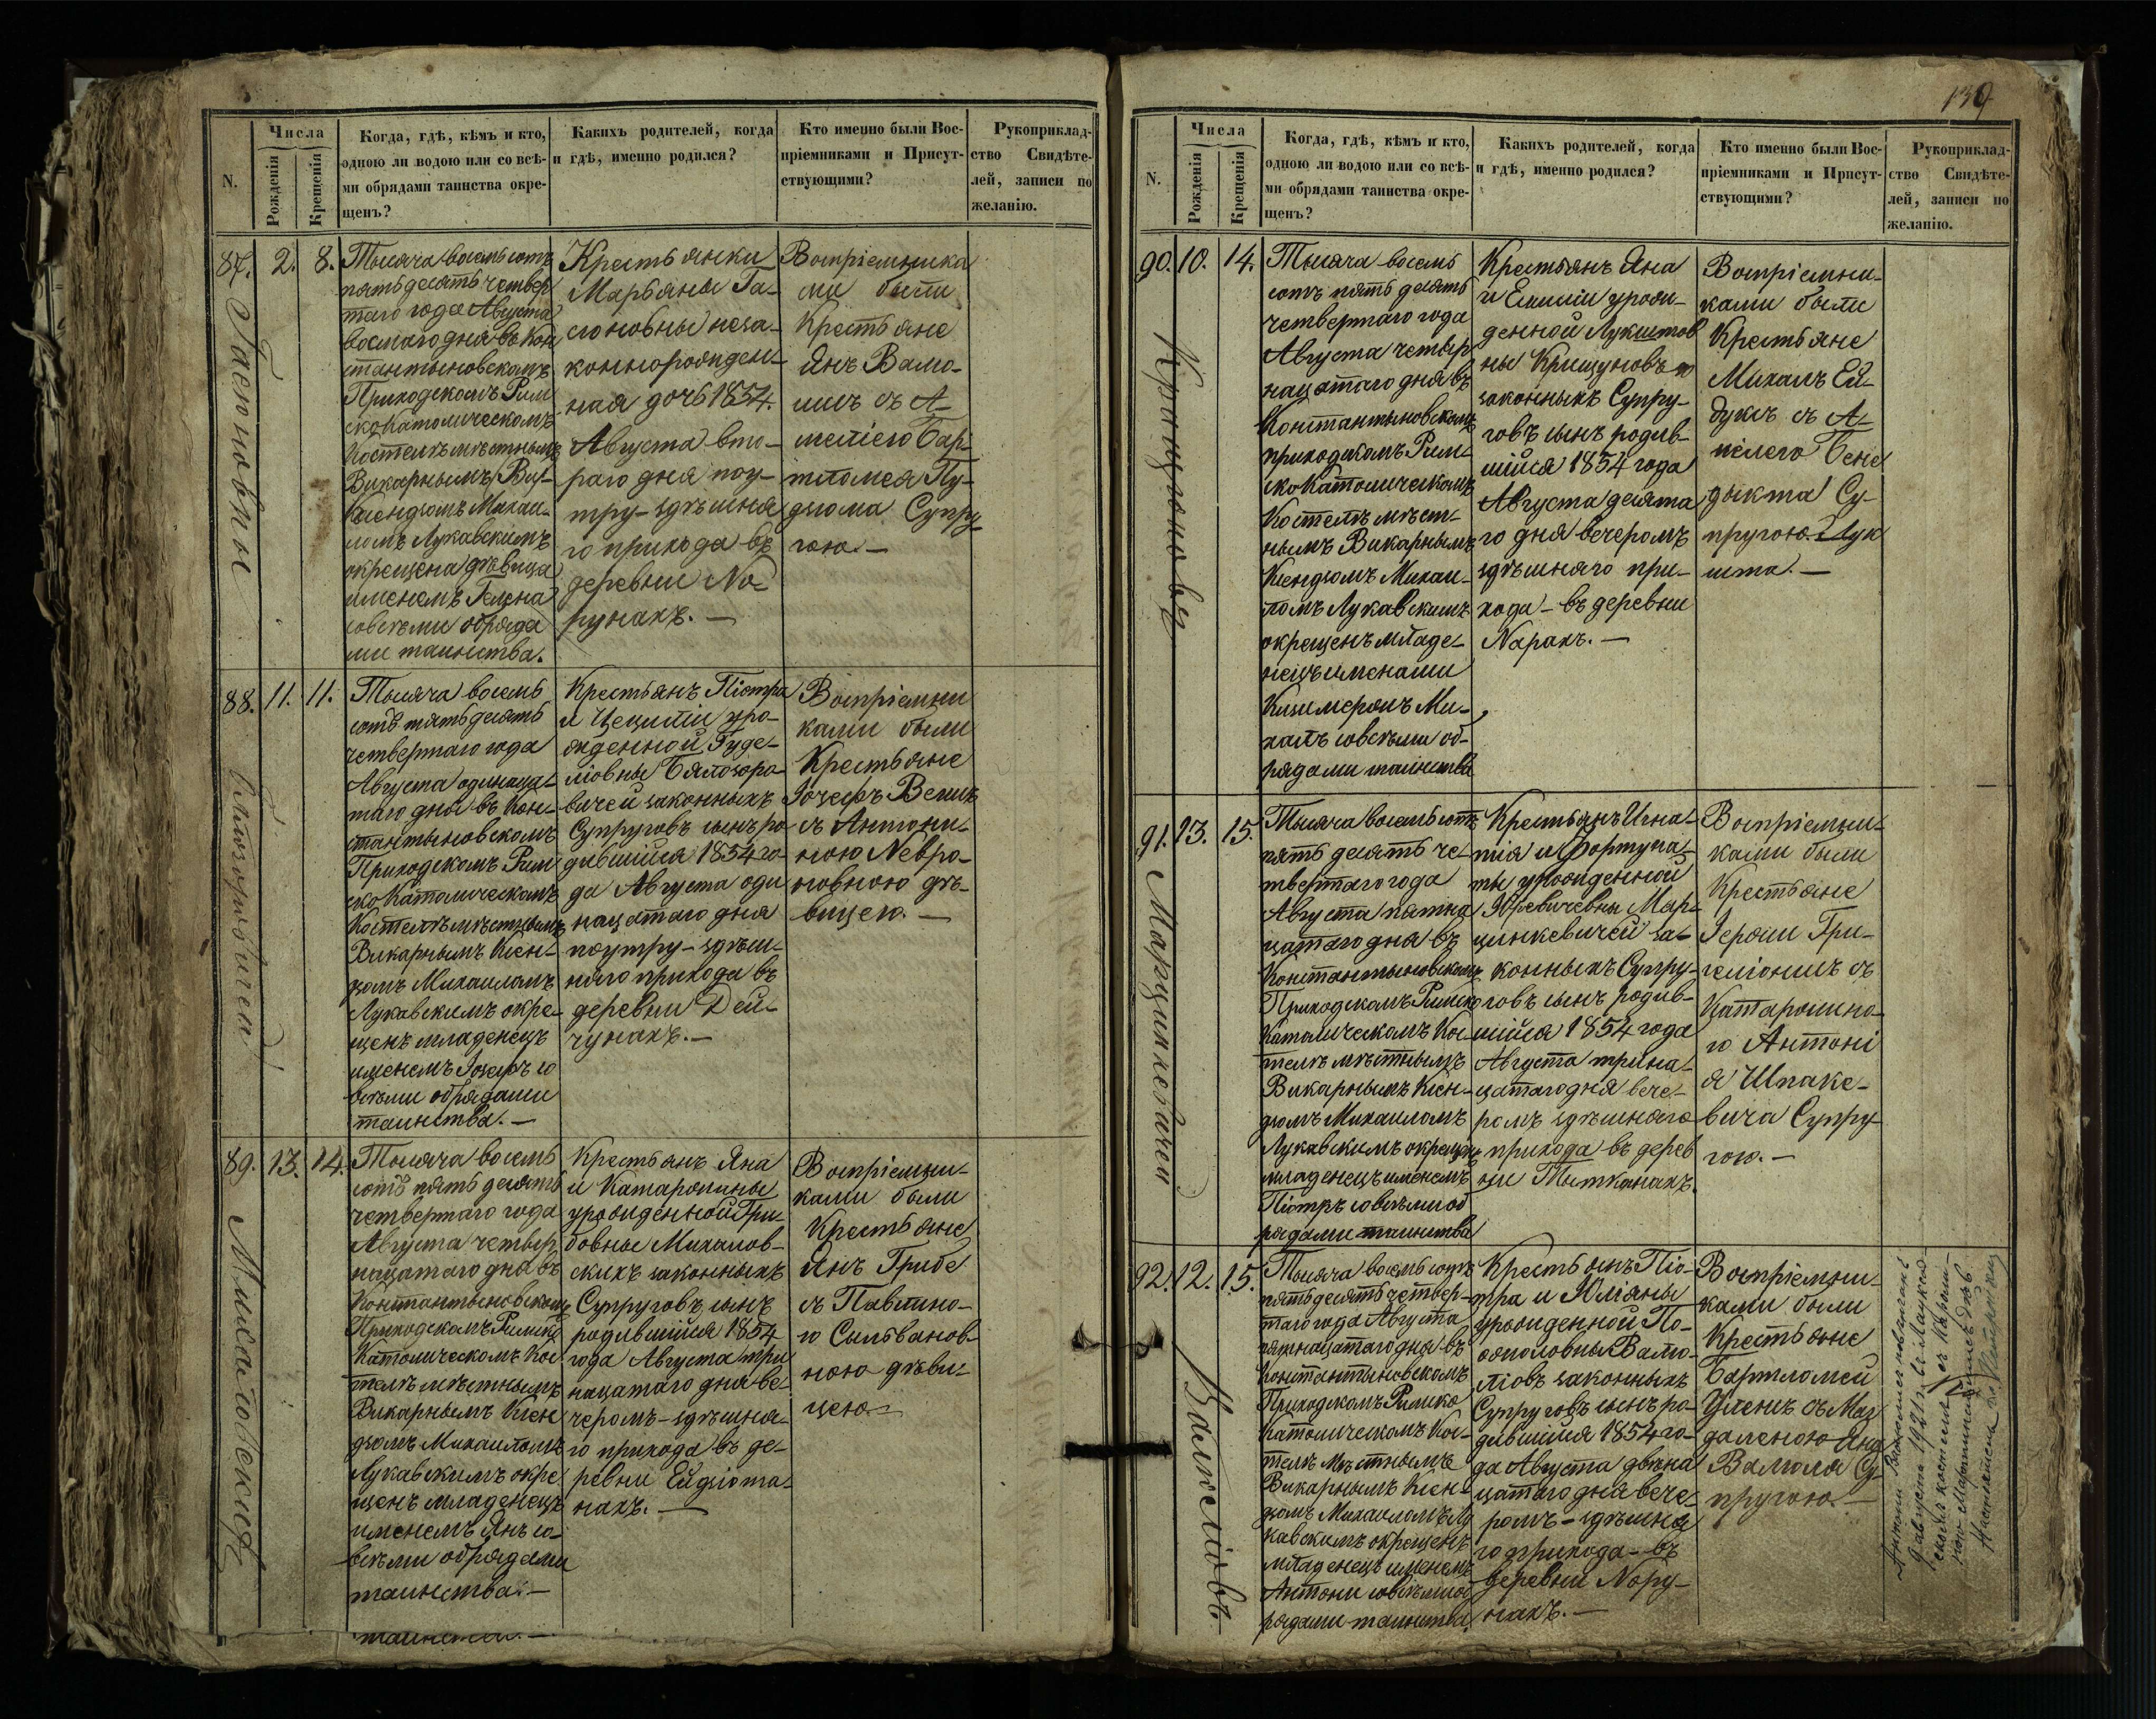 N.
Числа
Рожденія
Крещенія
Когда, гдѣ, кѣмъ и кто,
одною ли водою или со всѣ-
ми обрядами таинства окре-
щенъ?
Какихъ родителей, когда
и гдѣ, именно родился?
Кто именно были Вос-
пріемниками и Присут-
ствующими?
Рукоприклад-
ство Свидѣте-
лей, записи по
желанію.
87.
2.
8.
Тысяча восемьсотъ
пятьдесятъ четвер
таго года Августа
восьмаго дня въ Кон
стантыновскомъ
Приходскомъ Рим
скоКатолическомъ
Костелѣ мѣстнымъ
Викарнымъ
Ксендзомъ Михаи-
ломъ Лукавскимъ
окрещена дѣвица
именемъ Гелена
совсѣми обряда
ми таинства.
Крестьянки
Марьяны Га-
сюновны неза-
коннорожден-
ная дочь 1854.
Августа вто-
раго дня поу-
тру - здѣшня
го прихода въ
деревни No-
рунахъ. -
Воспріемника
ми были
Крестьяне
Янъ Валю-
лисъ съ А-
меліею Бар-
тломея Пу-
дзюма Супру-
гою. -
88.
11.
11.
Тысяча восемь
сотъ пятьдесятъ
четвертаго года
Августа одинаца-
таго дня въ Кон-
стантыновскомъ
Приходскомъ Рим
скоКатолическомъ
Костелѣ мѣстнымъ
Викарнымъ Ксен-
дзомъ Михаиломъ
Лукавскимъ окре-
щенъ младенецъ
именемъ Іозефъ со
всѣми обрядами
таинства. -
Крестьянъ Піотра
и Цециліи уро-
жденной Гуде-
ліовны Бялозоро-
вичей законныхъ
Супруговъ сынъ ро
дившійся 1854 го-
да Августа оди
нацатаго дня
поутру - здѣш-
няго прихода въ
деревни Дей-
чунахъ. -
Воспріемни
ками были
Крестьяне
Іозефъ Велик
съ Антони-
ною Nевро-
новною дѣ-
вицею. -
89.
13.
14.
Михаловскій
Тысяча восемь
сотъ пятьдесятъ
четвертаго года
Августа четыр
нацатаго дня въ
Константыновскомъ
Приходскомъ Римско
Католическомъ Кос
телѣ мѣстнымъ
Викарнымъ Ксен
дзомъ Михаиломъ
Лукавскимъ окре
щенъ младенецъ
именемъ Янъ со-
всѣми обрядами
таинства. -
Крестьянъ Яна
и Катаролины
урожденной Гри-
бовны Михалов-
скихъ законныхъ
Супруговъ сынъ
родившійся 1854
года Августа три
нацатаго дня ве-
черомъ - здѣшня-
го прихода въ де-
ревни Ейдзіота-
нахъ. -
Воспріемни-
ками были
Крестьяне
Янъ Грибъ
съ Павлино-
ю Сильванов-
ною дѣви-
цею -
139
N.
Числа
Рожденія
Крещенія
Когда, гдѣ, кѣмъ и кто,
одною ли водою или со всѣ-
ми обрядами таинства окре-
щенъ?
Какихъ родителей, когда
и гдѣ, именно родился?
Кто именно были Вос-
пріемниками и Присут-
ствующими?
Рукоприклад-
ство Свидѣте-
лей, записи по
желанію.
90.
10.
14.
Тысяча восемь
сотъ пятьдесятъ
четвертаго года
Августа четыр
нацатаго дня въ
Константыновскомъ
приходскомъ Рим-
скоКатолическомъ
Костелѣ мѣст-
нымъ Викарнымъ
Ксендзомъ Михаи-
ломъ Лукавскимъ
окрещенъ младе-
нецъ именами
Казимеромъ Ми-
халъ совсѣми об-
рядами таинства
Крестьянъ Яна
и Емиліи урож-
денной Лукштов
ны Крищуновъ
законныхъ Супру-
говъ сынъ родив-
шійся 1854 года
Августа десята
го дня вечеромъ
здѣшняго при-
хода - въ деревни
Nарахъ. -
Воспріемни-
ками были
Крестьяне
Михалъ Ей-
дукъ съ А-
нелею Бене
дыкта Су-
пругою Лук
шта. -
91.
13.
15.
Марцинкевичей
Тысяча восемьсотъ
пятьдесятъ че-
твертаго года
Августа пятна
цатаго дня въ
Константыновскомъ
Приходскомъ Римско
Католическомъ Кос-
телѣ мѣстнымъ
Викарнымъ Ксен-
дзомъ Михаиломъ
Лукавскимъ окрещенъ
младенецъ именемъ
Піотръ совсѣми об
рядами таинства
Крестьянъ Игна-
тія и Фортуна-
ты урожденной
Юревичевны Мар-
цинкевичей за-
конныхъ Супру-
говъ сынъ родив-
шійся 1854 года
Августа трина-
цатаго дня вече-
ромъ здѣшняго
прихода въ дерев
ни Тытканахъ.
Воспріемни-
ками были
Крестьяне
Героли Гри-
геліонисъ съ
Катаролино-
ю Антоні
я Шпаке-
вича Супру-
гою. -
92.
12.
15.
Валюліовъ
Тысяча восемьсотъ
пятьдесятъ четвер-
таго года Августа
пятнацатаго дня въ
Константыновскомъ
Приходскомъ Римско
Католическомъ Кос-
телѣ Мѣстнымъ
Викарнымъ Ксен-
дзомъ Михаиломъ Лу
кавскимъ окрещенъ
младенецъ именемъ
Антони совсѣми об
рядами таинства.
Крестьянъ Піо-
тра и Юліяны
урожденной
Валю-
ліовъ законныхъ
Супруговъ сынъ ро-
дившійся 1854 го-
да Августа двѣна
цатаго дня вече-
ромъ - здѣшня
го прихода - въ
деревни Nору-
нахъ. -
Воспріемни-
ками были
Крестьяне
Бартломей
съ Маг
даленою Яна
Валюля Су-
пругою. -